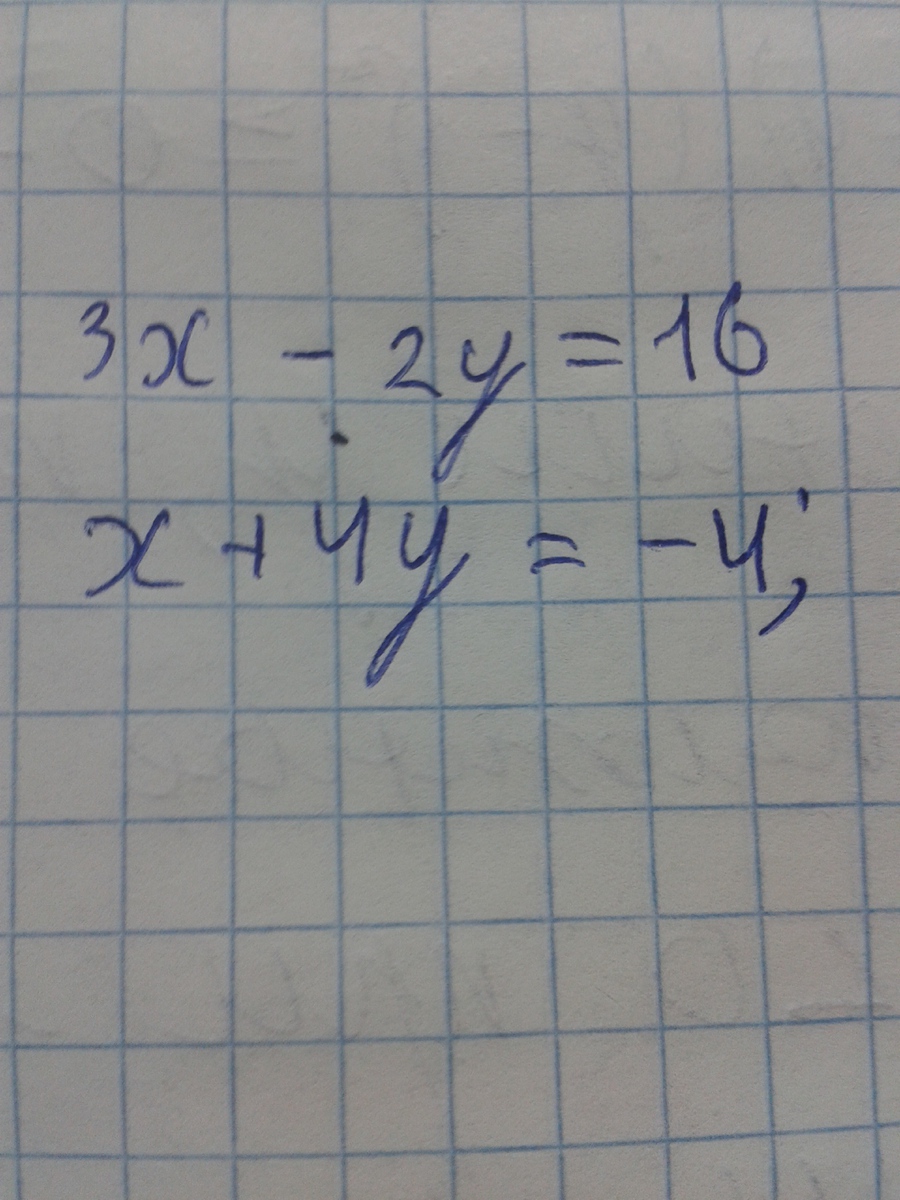 3x - 2y = 16
x + 4y = -4;